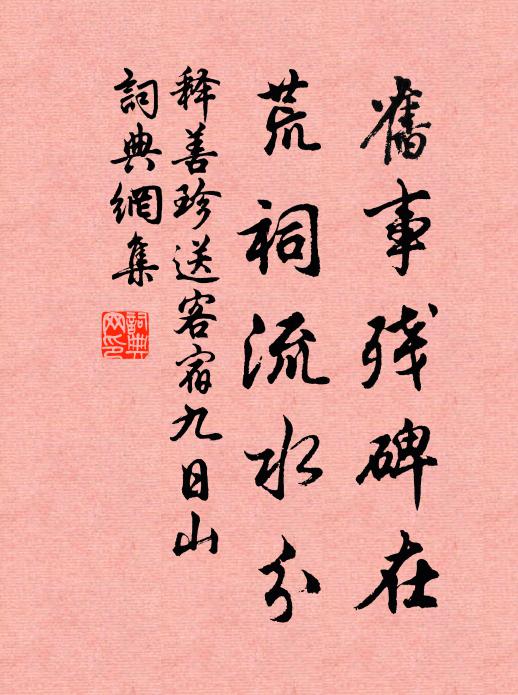 舊事残碑在
荒祠流水分
释善珍送客宿九日山
词典網集
詞典
网印